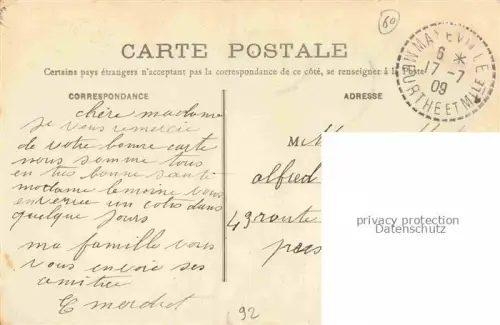 60
CARTE POSTALE
Certains pays étrangers n'acceptant pas la correspondance de ce côté, se renseigner à la Poste
CORRESPONDANCE
ADRESSE
chère madame
je vous remercie
de votre bonne carte
nous somme tous
en très bonne santé
madame lemoine vous
enverra un colis dans
quelque jours
ma famille vous
vous envoie ses
amitiée
E merchot
alfred
49 route
92
6 *
17-7
09
MEURTHE ET MLLE
privacy protection
Datenschutz